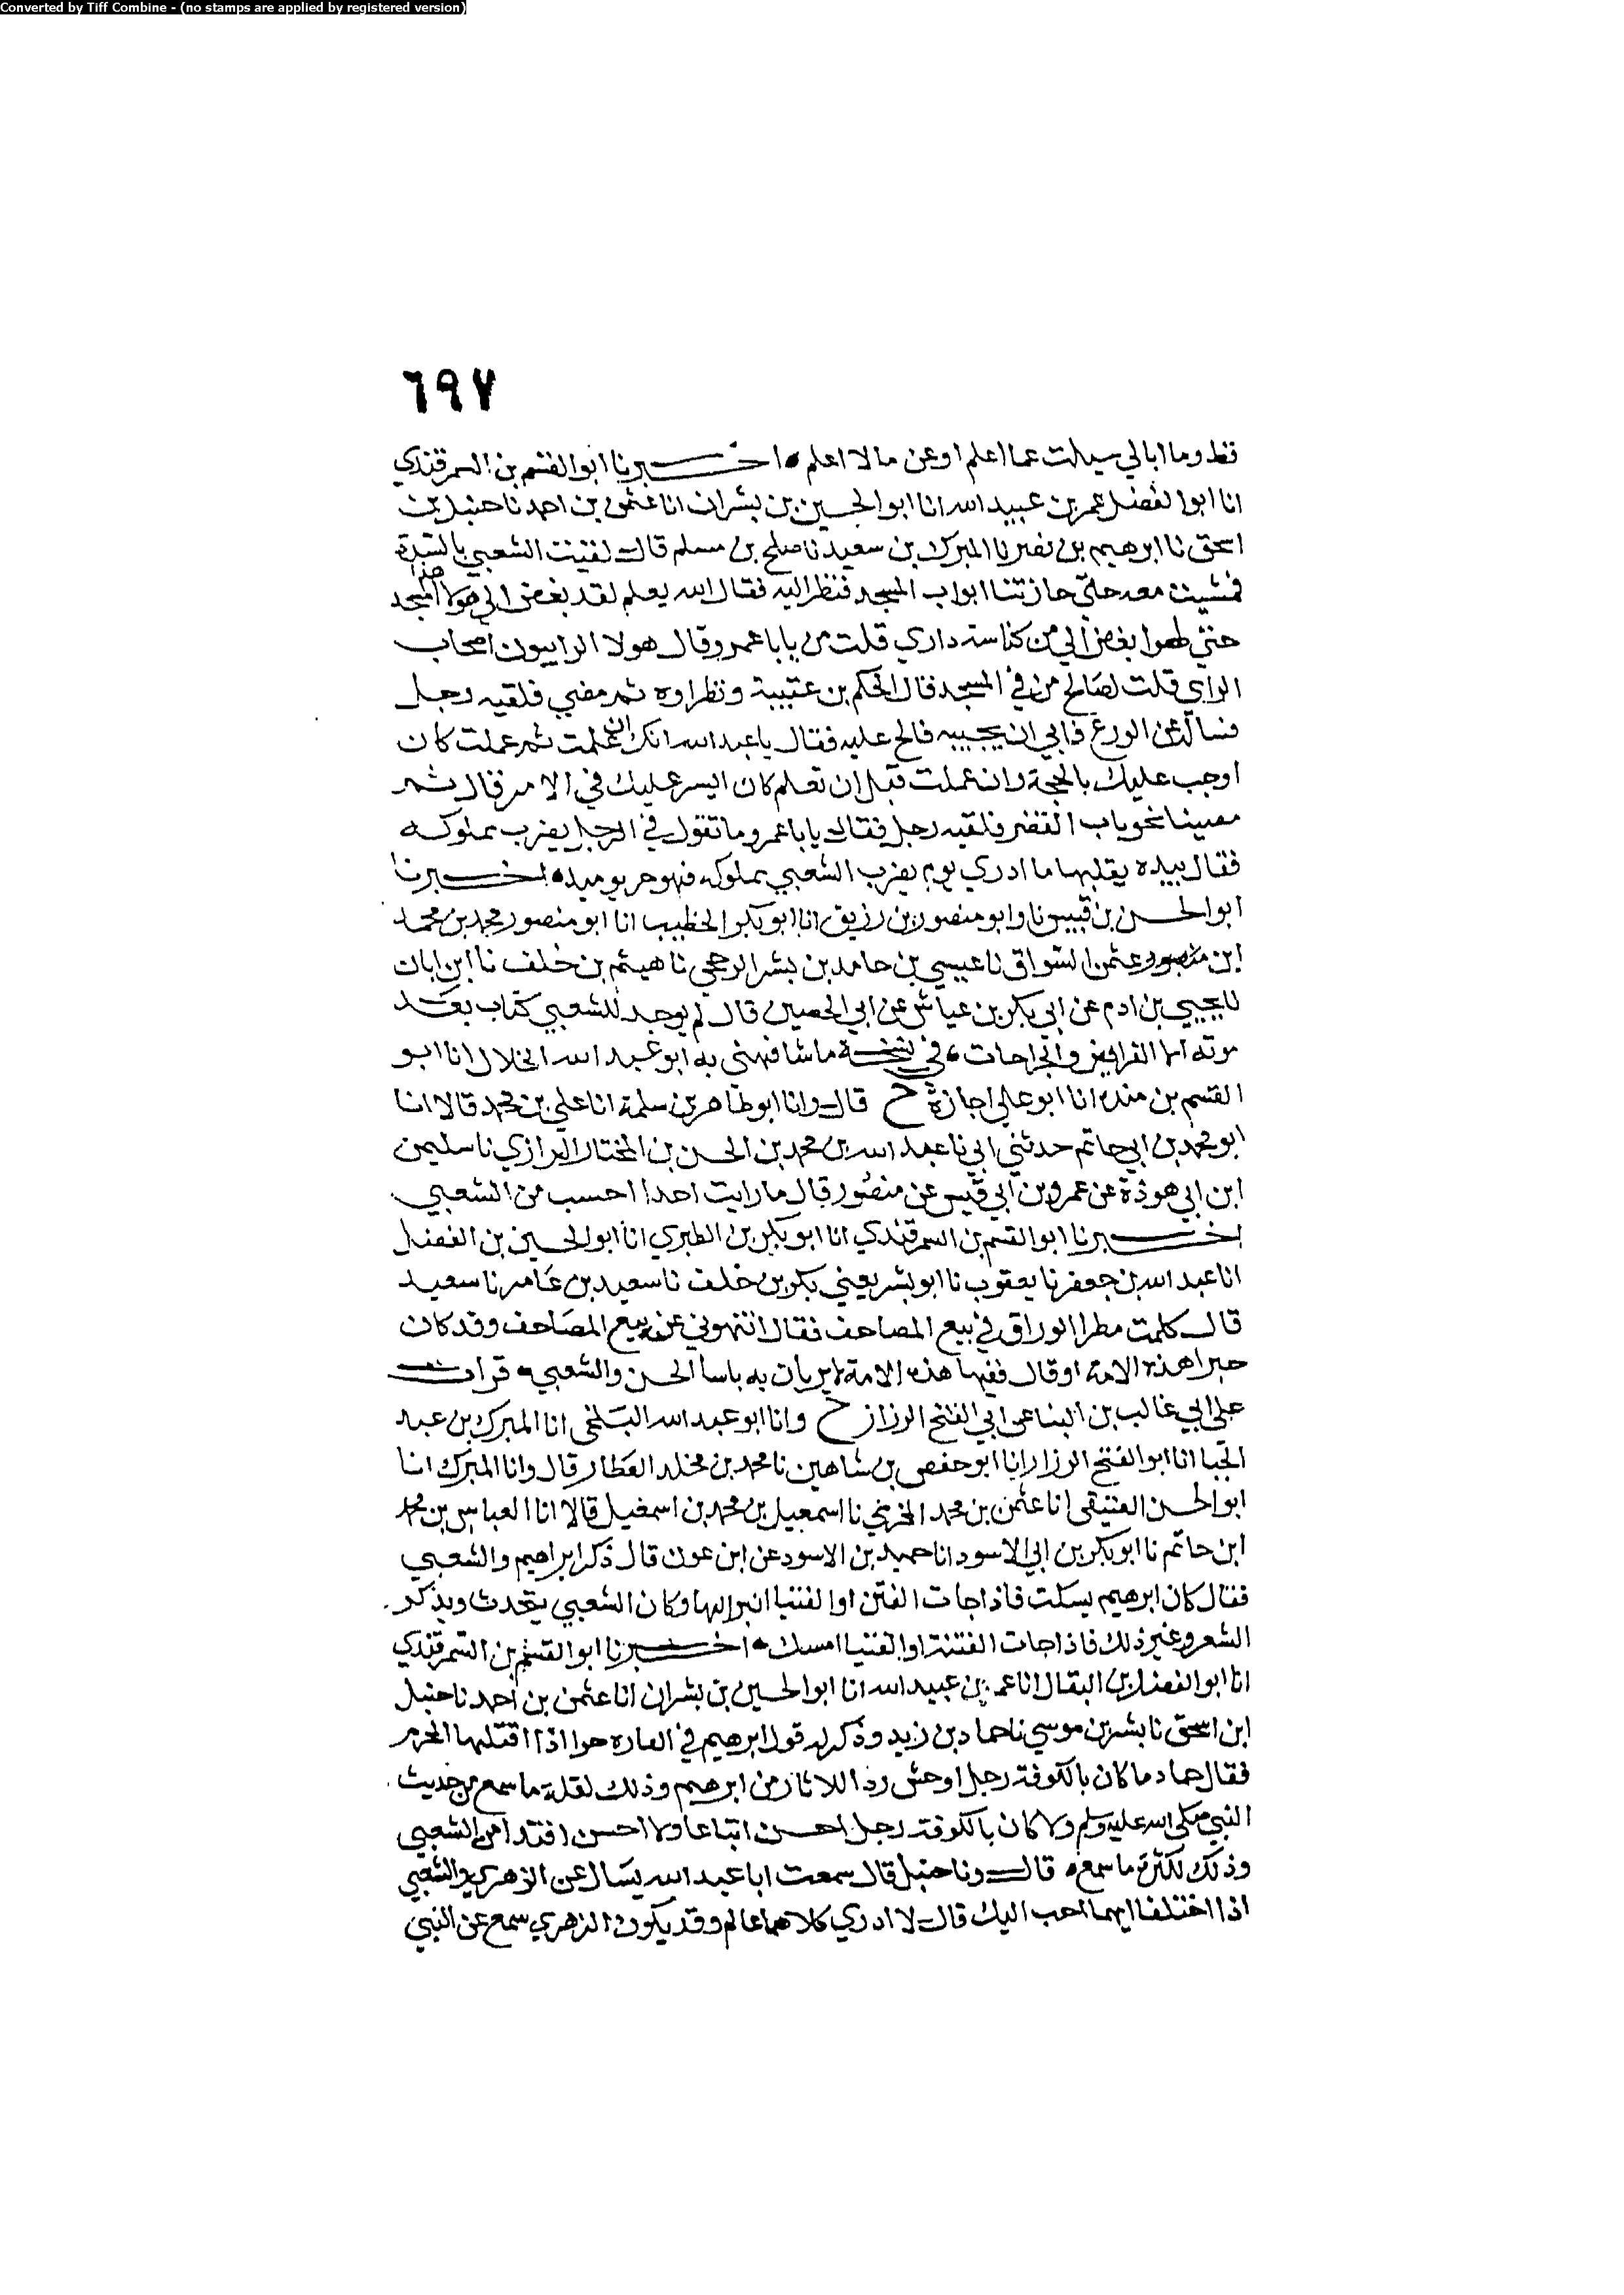 Converted by Tiff Combine - (no stamps are applied by registered version)
٦٩٧
قط وما ابالي سيلت عما اعلم او عن ما لا اعلم اخبرنا ابو القسم بن السمرقندي
انا ابو الفضل عمر بن عبيد الله انا ابو الحسين بن بشران انا عثمن بن احمد نا حنبل بن
اسحق نا ابرهيم بن نصر نا المبرك بن سعيد نا صالح بن مسلم قال لقيت الشعبي بالسدة
فمشيت معه حتي حازتنا ابواب المسجد فنظر اليه فقال الله يعلم لقد بغض الي هولا هذا المسجد
حتي لهوا بغض الي من كناسة داري قلت من يابا عمرو قال هولا الراييون اصحاب
الراي قلت لصالح من في المسجد قال الحكم بن عتيبة ونظراوه ثم مضي فلقيه رجل
فساله عن الورع فابي ان يجيبه فالح عليه فقال يا عبد الله انك ان علمت ثم عملت كان
اوجب عليك بالحجة وان عملت قبل ان تعلم كان ايسر عليك في الامر قال ثم
مصينا نحو باب القصر فلقيه رجل فقال يابا عمرو ما تقول في الرجل يضرب مملوكه
فقال بيده يقلبها ما ادري يوم يضرب الشعبي مملوكه فهو حر يوميد اخبرنا
ابو الحسن بن قبيس نا وابو منصور بن رزيق انا ابو بكر الخطيب انا ابو منصور محمد بن محمد
ابن عثمن السواق نا عيسي بن حامد بن بشر الرخجي نا هيثم بن خلف نا ابن ابان
نا يحيي بن ادم عن ابي بكر بن عياش عن ابي الحصين قال لم يوجد للشعبي كتاب بعد
موته الا الفرايض والجراحات في نسخة ما شافهني به ابو عبد الله الخلال انا ابو
القسم بن منده انا ابو علي اجازة ح قال وانا ابو طاهر بن سلمة انا علي بن محمد قالا انا
ابو محمد بن ابي حاتم حدثني ابي نا عبد الله بن محمد بن الحسن بن المختار الرازي نا سليمن
ابن ابي هوذة عن عمرو بن ابي قيس عن منصور قال ما رايت احدا احسب من الشعبي
اخبرنا ابو القسم بن السمرقندي انا ابو بكر بن الطبري انا ابو الحسين بن الفضل
انا عبد الله بن جعفر نا يعقوب نا ابو بشر يعني بكر بن خلف نا سعيد بن عامر نا سعيد
قال كلمت مطرا الوراق في بيع المصاحف فقال اتنهوني عن بيع المصاحف وقد كان
حبرا هذه الامة او قال فقيها هذه الامة لا يريان به باسا الحسن والشعبي قرات
علي ابي غالب بن البنا عن ابي الفتح الرزاز ح وانا ابو عبد الله البلخي انا المبرك بن عبد
الجبا انا ابو الفتح الرزاز انا ابو حفص بن شاهين نا محمد بن مخلد العطار قال وانا المبرك انا
ابو الحسن العتيقي انا عثمن بن محمد المخرمي نا اسمعيل بن محمد بن اسمعيل قالا انا العباس بن محمد
ابن حاتم نا ابو بكر بن ابي الاسود انا حميد بن الاسود عن ابن عون قال ذكر ابراهيم والشعبي
فقال كان ابرهيم يسكت فاذا جات الفتن او الفتيا انبرا لها وكان الشعبي يتحدث ويذكر
الشعر وغير ذلك فاذا جات الفتنة او الفتيا امسك اخبرنا ابو القسم بن السمرقندي
انا ابو الفضل بن البقال انا عمر بن عبيد الله انا ابو الحسين بن بشران انا عثمن بن احمد نا حنبل
ابن اسحق نا بشر بن موسي نا حماد بن زيد وذكر له قول ابرهيم في الفاره حوا اذا اقتلها المحرم
فقال حماد ما كان بالكوفة رجل اوحش ردا للاثار من ابرهيم وذلك لقلة ما سمع من حديث
النبي صلى الله عليه وسلم ولا كان بالكوفة رجل احسن اتباعا ولا احسن اقتدا من الشعبي
وذلك لكثرة ما سمع قال ونا حنبل قال سمعت ابا عبد الله يسال عن الزهري والشعبي
اذا اختلفا ايهما احب اليك قال لا ادري كلاهما عالم وقد يكون الزهري سمع عن النبي